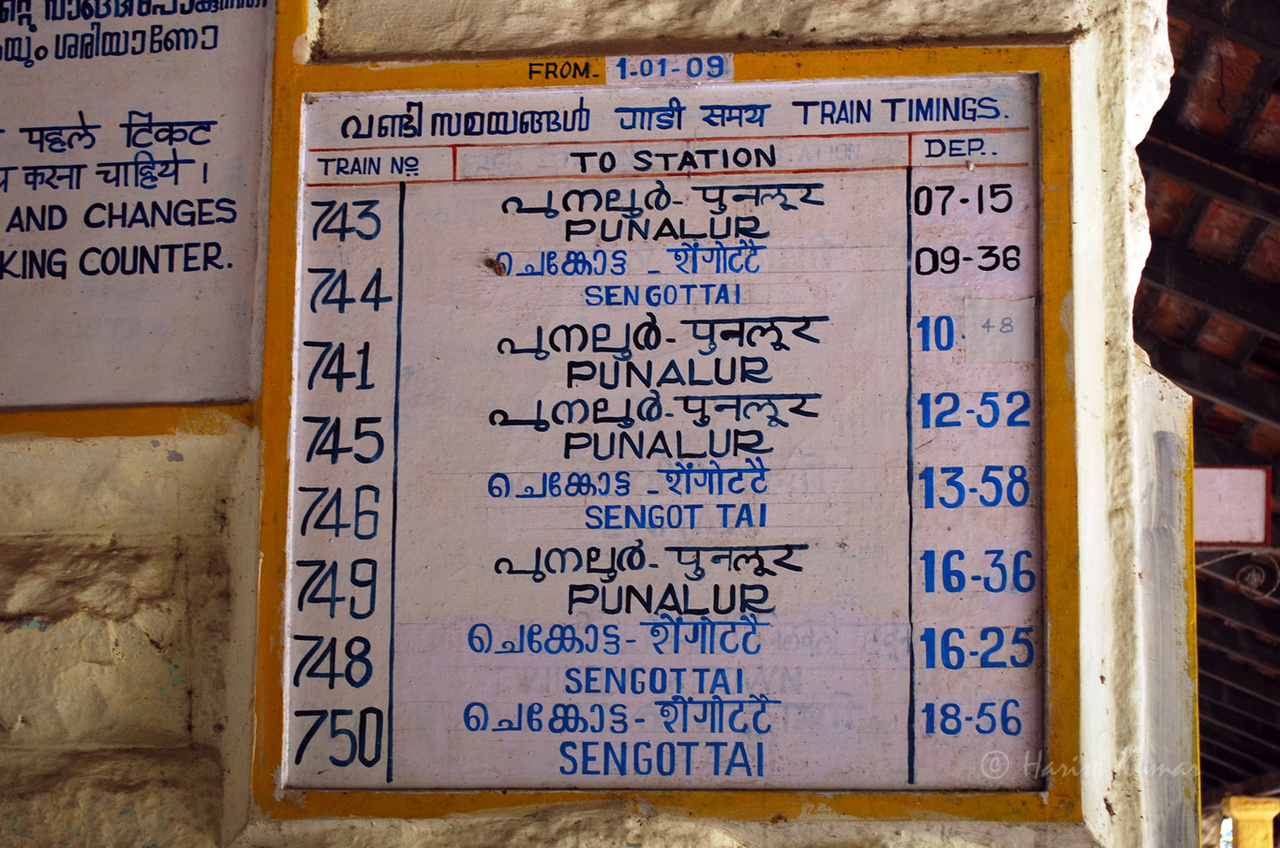 യും ശരിയാണോ
पहले टिकट
करना चाहिये ।
AND CHANGES
KING COUNTER.
FROM- 1-01-09
വണ്ടി സമയങ്ങൾ गाडी समय TRAIN TIMINGS.
TRAIN No TO STATION DEP..
743 പുനലൂർ- पुनलूर 07-15
PUNALUR
744 ചെങ്കോട്ട - शेंगोटटै 09-36
SENGOTTAI
741 പുനലൂർ- पुनलूर 10 48
PUNALUR
745 പുനലൂർ- पुनलूर 12-52
PUNALUR
746 ചെങ്കോട്ട - शेंगोटटै 13-58
SENGOT TAI
749 പുനലൂർ- पुनलूर 16-36
PUNALUR
748 ചെങ്കോട്ട- शेंगोटटै 16-25
SENGOTTAI
750 ചെങ്കോട്ട- शेंगोटटै 18-56
SENGOTTAI
© Harish Kumar